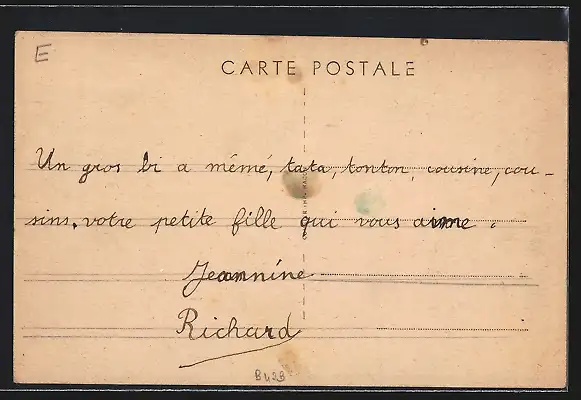 E
CARTE POSTALE
Un gros bi a mémé, tata, tonton, cousine, cou-
sins, votre petite fille qui vous aime.
Jeannine
Richard